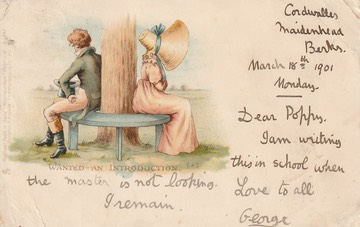 Cordwalles
Maidenhead
Berks.
March 18th 1901
Monday.
Dear Poppy.
I am writing
this in school when
WANTED—AN INTRODUCTION
the master is not looking.
Love to all
I remain.
George